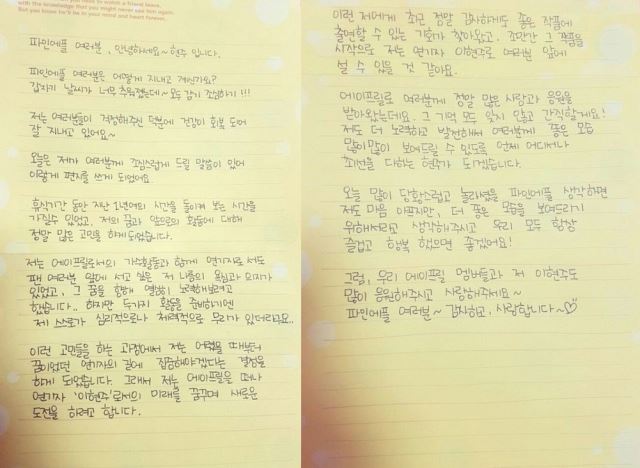 with the knowledge that you might never see him again.
But you know he'll be in your mind and heart forever.
파인에플 여러분, 안녕하세요~ 현주 입니다.
파인에플 여러분은 어떻게 지내고 계신가요?
갑자기 날씨가 너무 추워졌는데~ 모두 감기 조심하기!!!
저는 여러분들이 걱정해주신 덕분에 건강이 회복 되어
잘 지내고 있어요~
오늘은 제가 여러분께 조심스럽게 드릴 말씀이 있어
이렇게 편지를 쓰게 되었어요.
휴식기간 동안 지난 1년여의 시간을 돌이켜 보는 시간을
가질수 있었고, 저의 꿈과 앞으로의 활동에 대해
정말 많은 고민을 하게되었습니다.
저는 에이프릴로서의 가수활동과 함께 연기자로서도
팬 여러분 앞에 서고 싶은 저 나름의 욕심과 의지가
있었고, 그 꿈을 향해 열심히 노력해보려고
했습니다.. 하지만 두가지 활동을 준비하기엔
제 스스로가 심리적으로나 체력적으로 무리가 있더라구요..
이런 고민들을 하는 과정에서 저는 어렸을 때부터
꿈이었던 연기자의 길에 집중해야겠다는 결정을
하게 되었습니다. 그래서 저는 에이프릴을 떠나
연기자 '이현주'로서의 미래를 꿈꾸며 새로운
도전을 하려고 합니다.
이런 저에게 최근 정말 감사하게도 좋은 작품에
출연할 수 있는 기회가 찾아왔고, 조만간 그 작품을
시작으로 저는 연기자 이현주로 여러분 앞에
설 수 있을 것 같아요.
에이프릴로 여러분께 정말 많은 사랑과 응원을
받아왔는데요. 그 기억 모두 잊지 않고 간직할게요!
저도 더 노력하고 발전해서 여러분께 좋은 모습
많이많이 보여드릴 수 있도록 언제 어디서나
최선을 다하는 현주가 되겠습니다.
오늘 많이 당황스럽고 놀라셨을 파인에플 생각하면
저도 마음 아프지만, 더 좋은 모습을 보여드리기
위해서라고 생각해주시고 우리 모두 항상
즐겁고 행복 했으면 좋겠어요!
그럼, 우리 에이프릴 멤버들과 저 이현주도
많이 응원해주시고 사랑해주세요~
파인에플 여러분~ 감사하고, 사랑합니다~♡